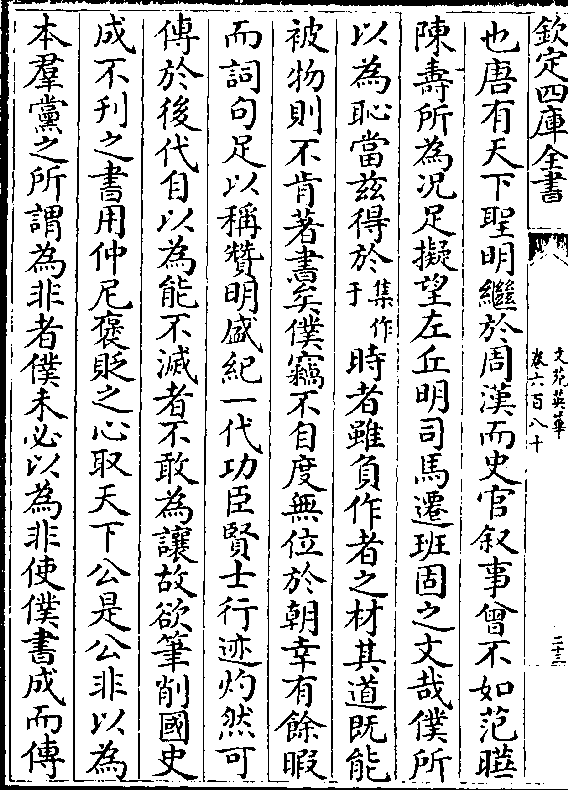 欽定四庫全書
文苑英華
卷六百八十
二十三
也唐有天下聖明繼於周漢而史官叙事曾不如范曄
陳壽所為况足擬望左丘明司馬遷班固之文哉僕所
以為恥當兹得於集作于時者雖負作者之材其道既能
被物則不肯著書矣僕竊不自度無位於朝幸有餘暇
而詞句足以稱贊明盛紀一代功臣賢士行迹灼然可
傳於後代自以為能不滅者不敢為讓故欲筆削國史
成不刊之書用仲尼褒貶之心取天下公是公非以為
本羣黨之所謂為非者僕未必以為非使僕書成而傳